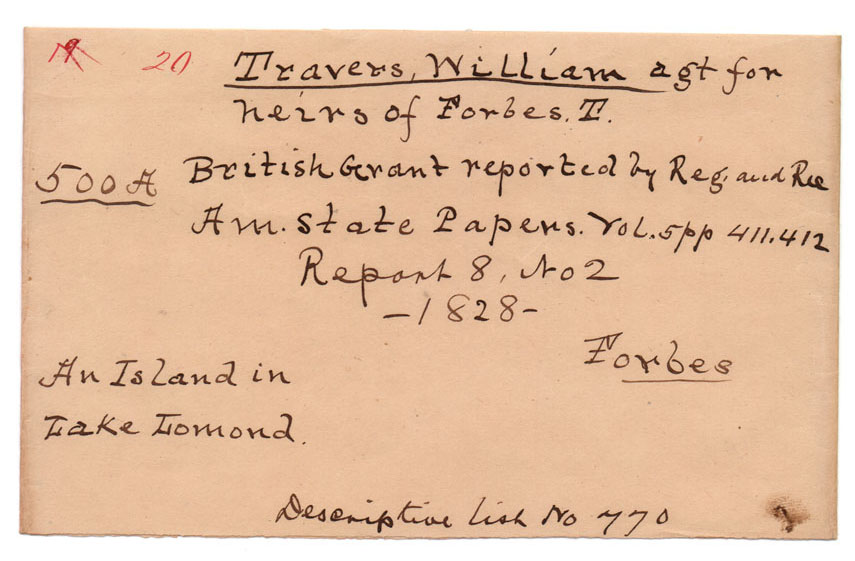 19 20 Travers, William agt for
heirs of Forbes. T.
500 A British Grant reported by Reg. and Rec
Am. State Papers. Vol. 5 pp 411.412
Report 8, No 2
- 1828 -
Forbes
An Island in
Lake Lomond.
Descriptive list No 770